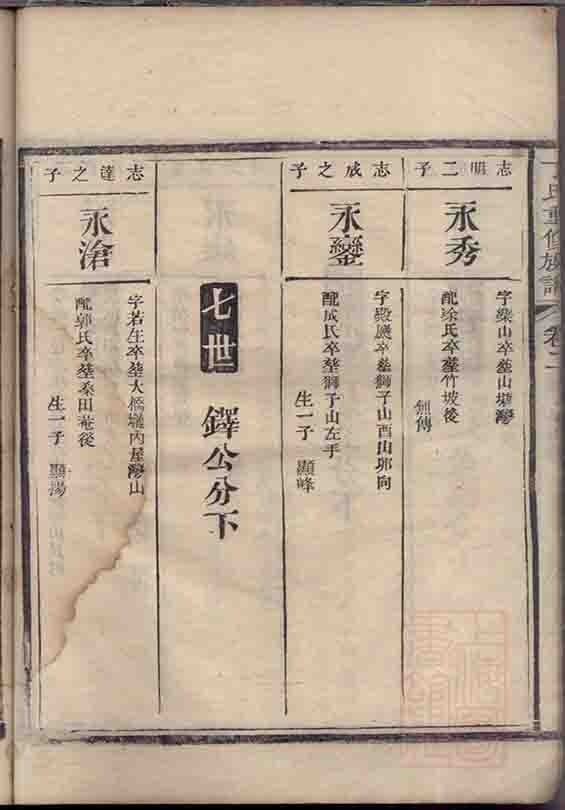 丁氏重修族譜
卷二
志明二子
永秀
字榮山卒塟山塘灣
配凃氏卒塟竹坡後
無傳
志成之子
永鑾
字殿颺卒塟獅子山酉山卯向
配成氏卒塟獅子山左手
生一子 顯峰
七世
鐸公分下
志達之子
永滄
字若生卒塟大橋壋內屋灣山
配郭氏卒塟桑田菴後
生一子 顯揚